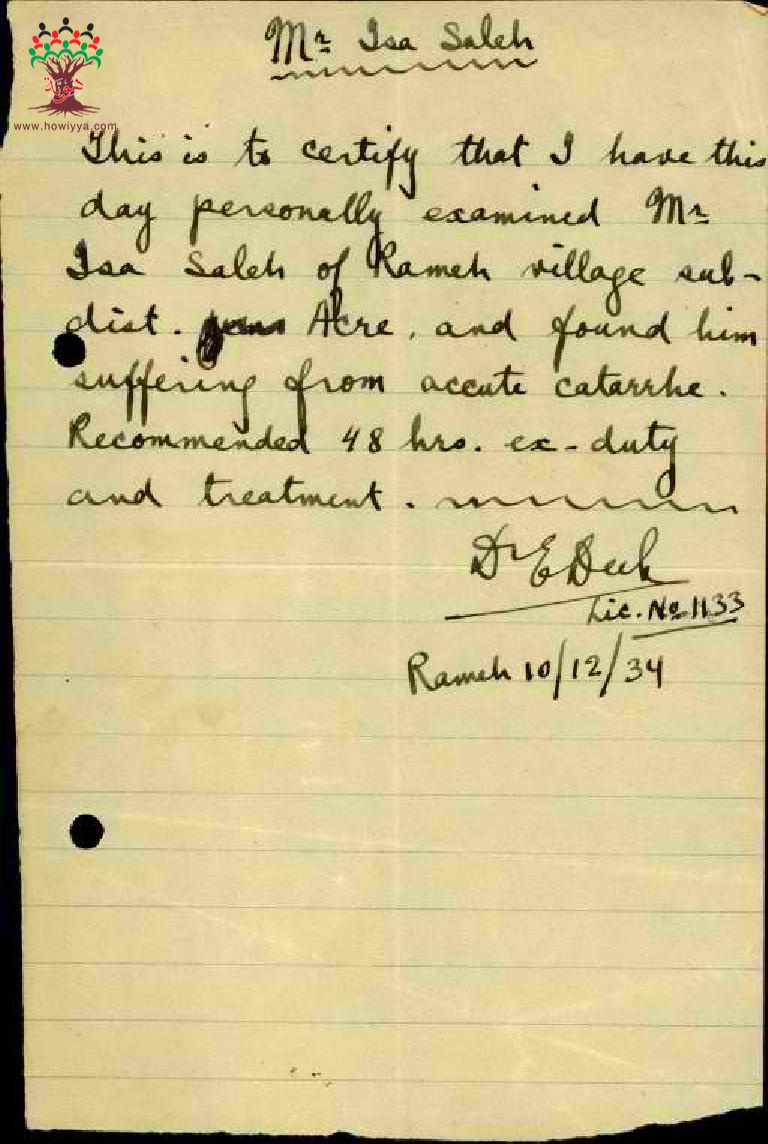 Mr Isa Saleh
www.howiyya.com
This is to certify that I have this
day personally examined Mr
Isa Saleh of Rameh village sub-
dist. Acre, and found him
suffering from accute catarrhe.
Recommended 48 hrs. ex-duty
and treatment.
Dr E Deek
Lic. No 1133
Rameh 10/12/34